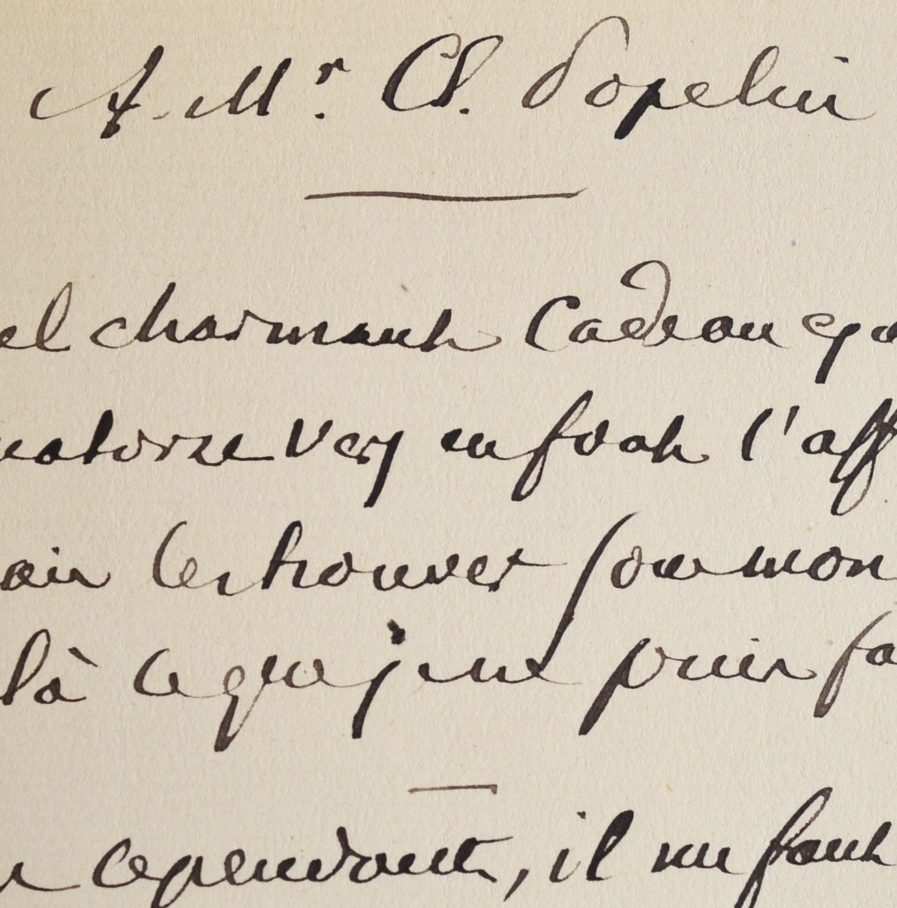 A Mr. Cl. Popelin
el charmant cadeau q
uatorze vers en font l'aff
air les trouver sous mon
là ce que je ne puis fa
cependant, il me faut